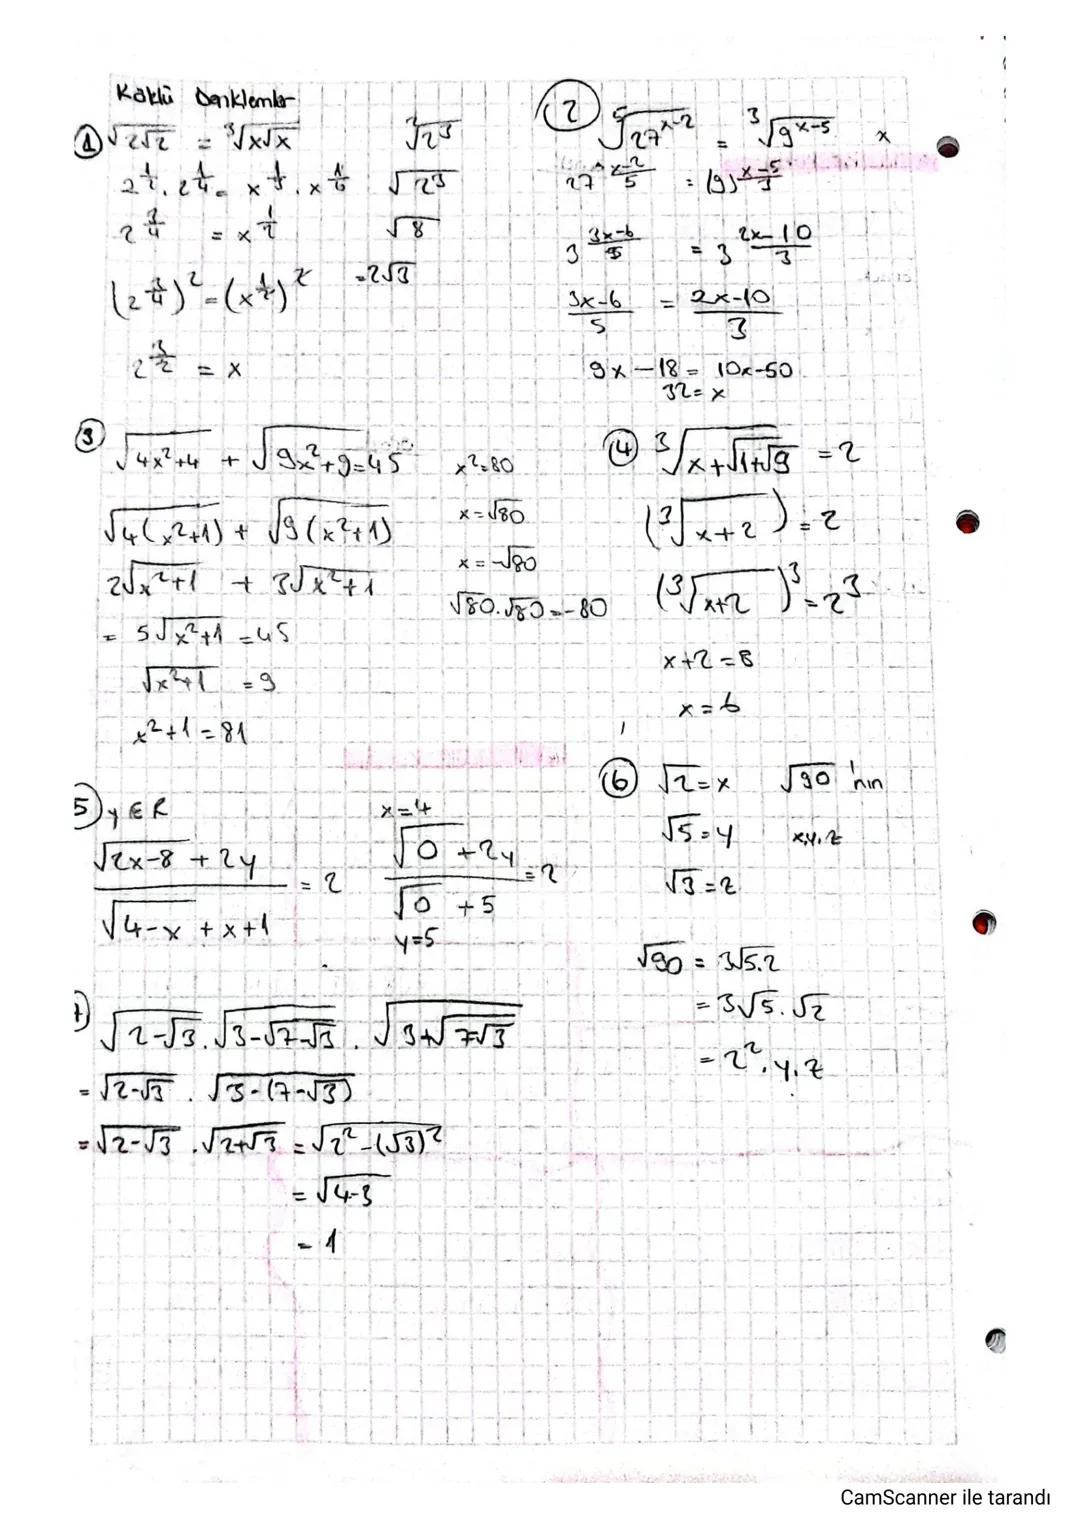 Köklü Denklemler
① √(2√2) = ³√(x√x)
²√(2³)
2^(1/2) . 2^(1/4) = x^(1/3) . x^(1/6)
√(2³)
2^(3/4) = x^(1/2)
√8
(2^(3/4))² = (x^(1/2))²
= 2√3
2^(3/2) = x
② ⁵√(27^(x-2)) = ³√(9^(x-5)) x
27^((x-2)/5) = (9)^((x-5)/3)
3^((3x-6)/5) = 3^((2x-10)/3)
(3x-6)/5 = (2x-10)/3
9x - 18 = 10x - 50
32 = x
③ √(4x²+4) + √(9x²+9) = 45
x² = 80
√(4(x²+1)) + √(9(x²+1))
x = √80
2√(x²+1) + 3√(x²+1)
x = -√80
√80 . √80 = -80
= 5√(x²+1) = 45
√(x²+1) = 9
x²+1 = 81
④ ³√(x+√(1+√9)) = 2
(³√(x+2)) = 2
(³√(x+2))³ = 2³
x+2 = 8
x = 6
5) y ∈ R
x = 4
(√(2x-8) + 2y)/(√(4-x) + x + 1) = 2
(√0 + 2y)/(√0 + 5) = 2
y = 5
⑥ √2 = x √90 'nın
√5 = y x,y,z
√3 = z
√90 = 3√5.2
= 3√5 . √2
= z² . y . z
7) √(2-√3) . √(3-√(7-√3)) . √(3+√(7-√3))
= √(2-√3) . √(3-(7-√3))
= √(2-√3) . √(2+√3) = √(2²-(√3)²)
= √(4-3)
= 1
CamScanner ile tarandı